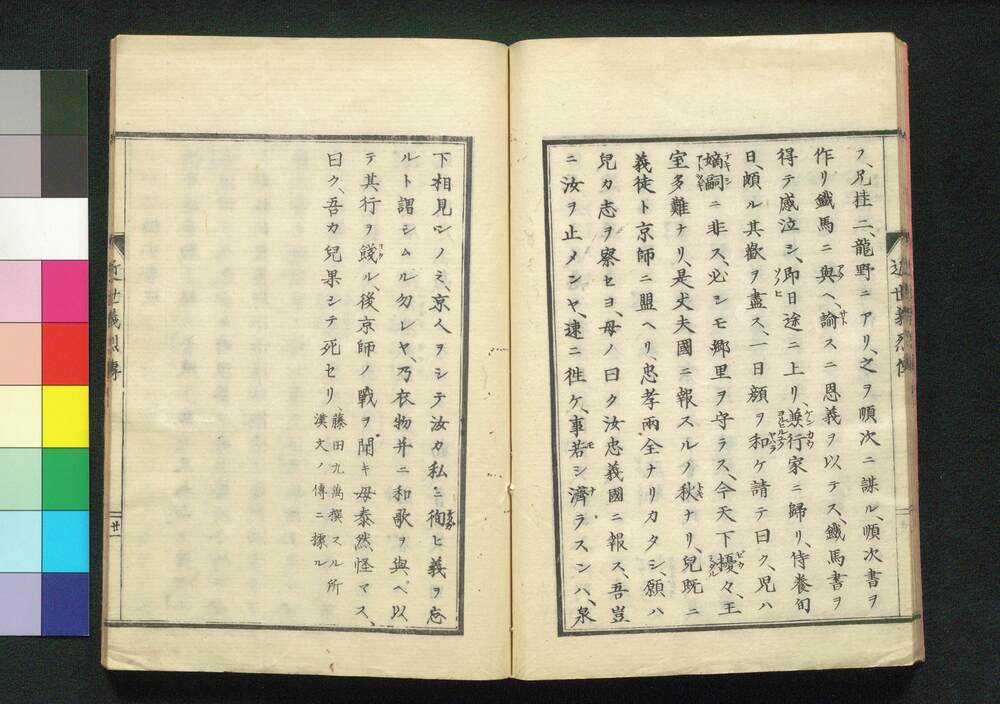 フ、兄挂二、龍野ニアリ、之ヲ順次ニ謀ル、順次書ヲ
作リ鐵馬ニ與ヘ、諭スニ恩義ヲ以テス、鐵馬書ヲ
得テ感泣シ、即日途ニ上リ、兼行家ニ歸リ、侍養旬
日、頗ル其歡ヲ盡ス、一日顔ヲ和ケ請テ曰ク、児ハ
嫡嗣ニ非ス、必シモ郷里ヲ守ラス、今天下擾々、王
室多難ナリ、是丈夫國ニ報スルノ秋ナリ、兒既ニ
義徒ト京師ニ盟ヘリ、忠孝兩全ナリカタシ、願ハ
兒カ志ヲ察セヨ、母ノ曰ク汝忠義國ニ報ス、吾豈
ニ汝ヲ止メンヤ、速ニ徃ケ、事若シ濟ラスンハ、泉
下相見ンノミ、京人ヲシテ汝カ私ニ徇ヒ義ヲ忘
ルト謂シムル勿レヤ、乃衣物并ニ和歌ヲ與ヘ以
テ其行ヲ餞ル、後京師ノ戰ヲ聞キ母泰然怪マス、
曰ク、吾カ兒果シテ死セリ、
藤田九萬撰スル所
漢文ノ傳ニ據ル
近世義烈傳
廿